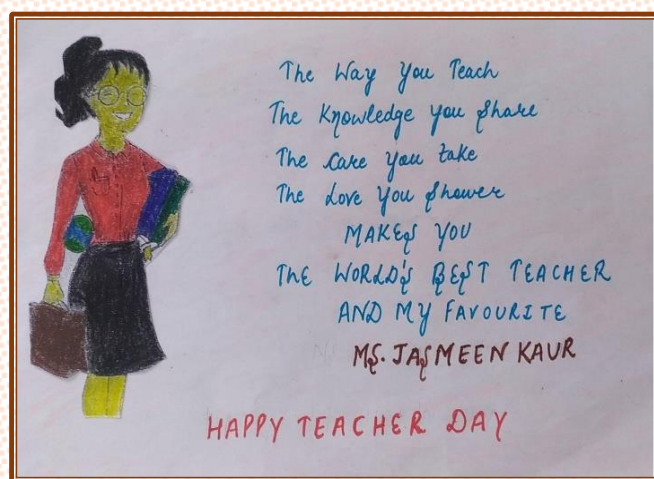 The Way You Teach
The Knowledge you Share
The Care you take
The Love You Shower
MAKES YOU
THE WORLD'S BEST TEACHER
AND MY FAVOURITE
MS. JASMEEN KAUR
HAPPY TEACHER DAY